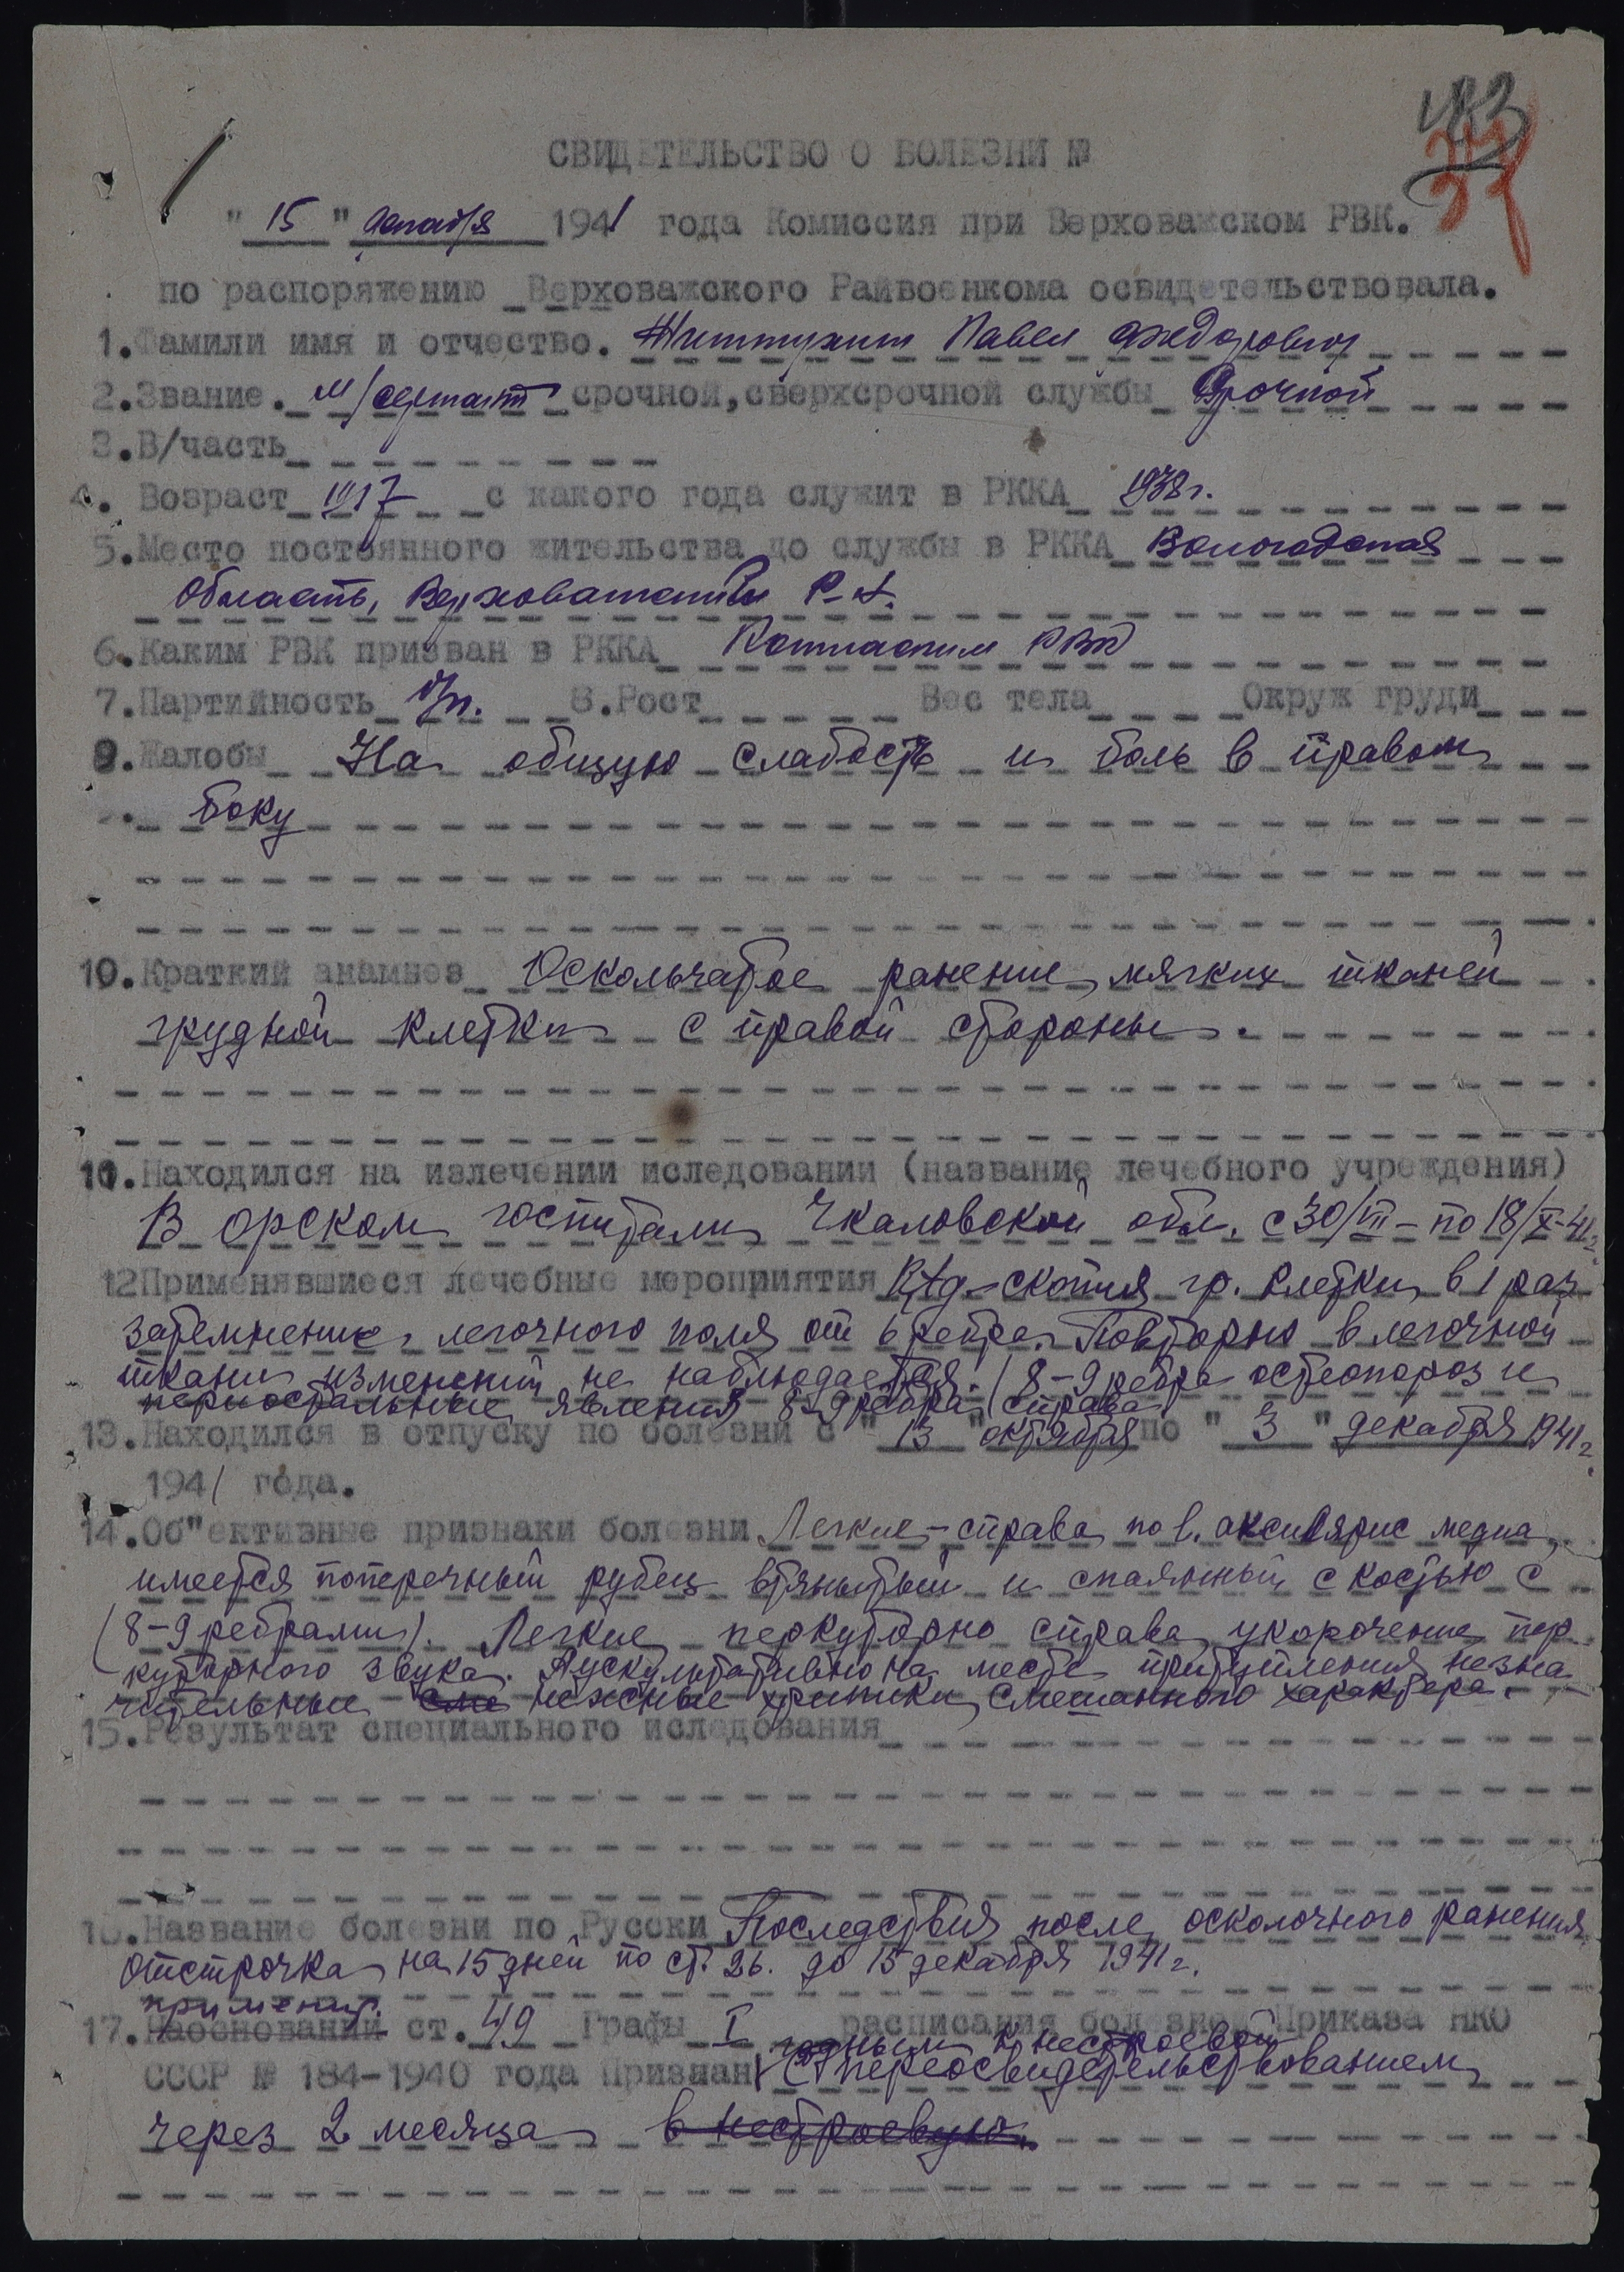 СВИДЕТЕЛЬСТВО О БОЛЕЗНИ №
" 15 " декабря 1941 года Комиссия при Верховажском РВК.
по распоряжению Верховажского Райвоенкома освидетельствовала.
1. Фамили имя и отчество. Павел Федорович
2. Звание. м/сержант срочной, сверхсрочной службы Срочной
3. В/часть
4. Возраст 1917 с какого года служит в РККА 1938 г.
5. Место постоянного жительства до службы в РККА Вологодская
Область, Верховажский р-н.
6. Каким РВК призван в РККА Котласким РВК
7. Партийность б/п. 8. Рост Вес тела Окруж груди
9. Жалобы На общую слабость и боль в правом
боку
10. Краткий анамнез Оскольчатое ранение мягких тканей
грудной клетки с правой стороны.
11. Находился на излечении иследовании (название лечебного учреждения)
В орском госпитали Чкаловской обл. с 30/VII - по 18/X-41г.
12 Применявшиеся лечебные мероприятия скопия гр. клетки в 1 раз
затемнение легочного поля от 6 ребра. Повторно в легочной
ткани изменений не наблюдается. (8-9 ребра остеопороз и
периостальные явления 8-9 ребра справа)
13. Находился в отпуску по болезни с " 13 " октября по " 3 " декабря 1941 г.
1941 года.
14. Об"ективные признаки болезни Легкие - справа по l. аксилярис медиа,
имеется поперечный рубец втянытый и спаянный с костью с
(8-9 ребрами). Легкие перкуторно справа укорочение пер
куторного звука. Аускультативно на месте притупления незна
чительные нежные хрипики смешанного характера.
15. Результат специального иследования
16. Название болезни по Русски Последствия после осколочного ранения
отстрочка на 15 дней по ст. 26. до 15 декабря 1941 г.
применит.
17. Наосновании ст. 49 Графы I расписания болезней Приказа НКО
годным к нестроевой
СССР № 184-1940 года Признан с переосвидетельствованием
через 2 месяца в нестроевую.